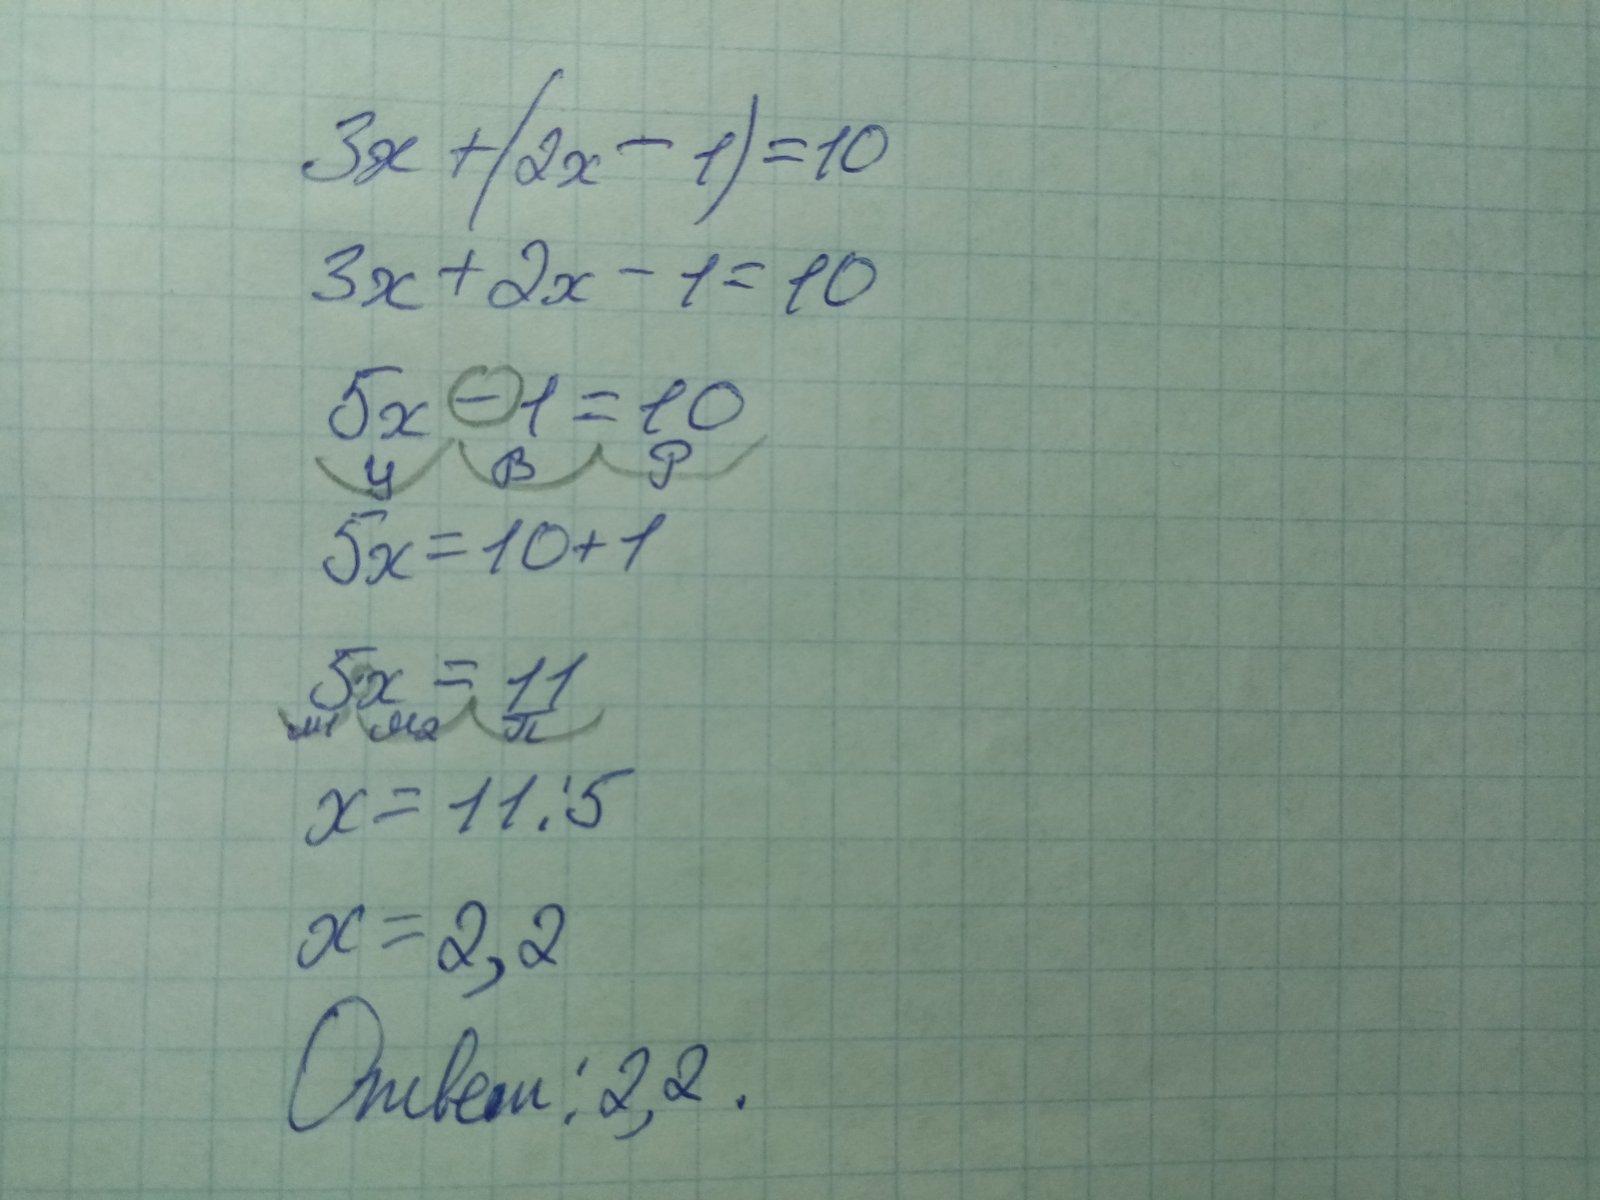 3x + (2x - 1) = 10
3x + 2x - 1 = 10
5x - 1 = 10
У В Р
5x = 10 + 1
5·x = 11
м1 м2 П
x = 11:5
x = 2,2
Ответ: 2,2.